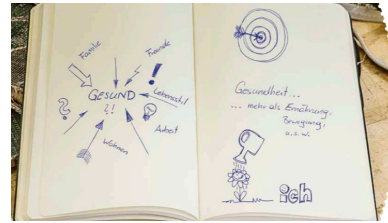 Familie
Freunde
GESUND
?!
Lebensstil
Arbeit
Wohnen
Gesundheit...
... mehr als Ernährung,
Bewegung,
u.s.w.
ich